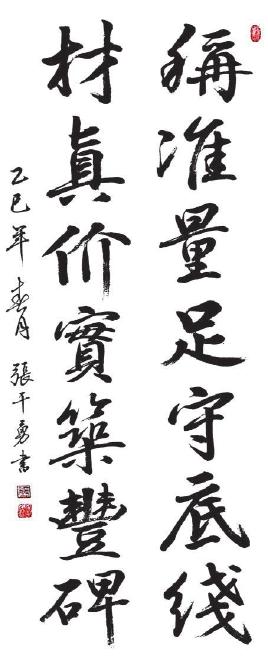 稱准量足守底线
材真价實築豐碑
乙巳年春月張干勇書